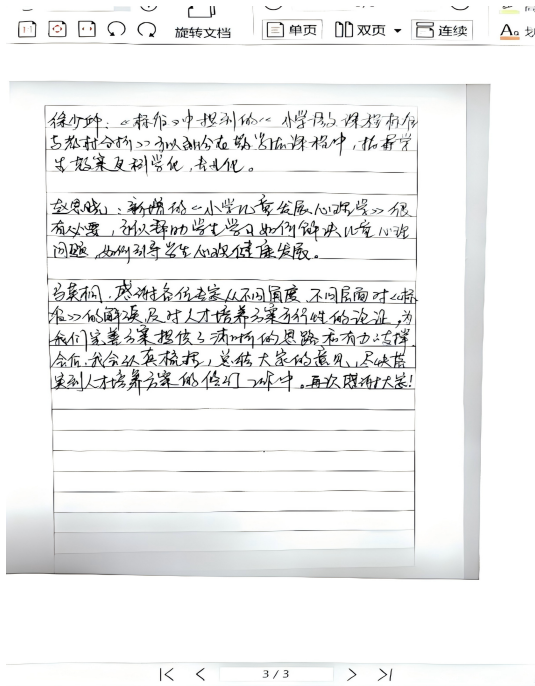 旋转文档 单页 双页 连续
徐少坤：《标准》中提到的《小学语文课程标准
与教材分析》可以部分在教学法课程中，指导学
生教案更科学化，专业化。
赵思晓：新增的《小学儿童发展心理学》很
有必要，可以帮助学生学习如何解决儿童心理
问题，如何引导学生心理健康发展。
马英桐：感谢各位专家从不同角度、不同层面对《标
准》的解读及对人才培养方案可行性的论证，为
我们完善方案提供了清晰的思路和有力支撑
会后，我会认真梳理，总结大家的意见，尽快落
实到人才培养方案的修订工作中。再次感谢大家！
3 / 3